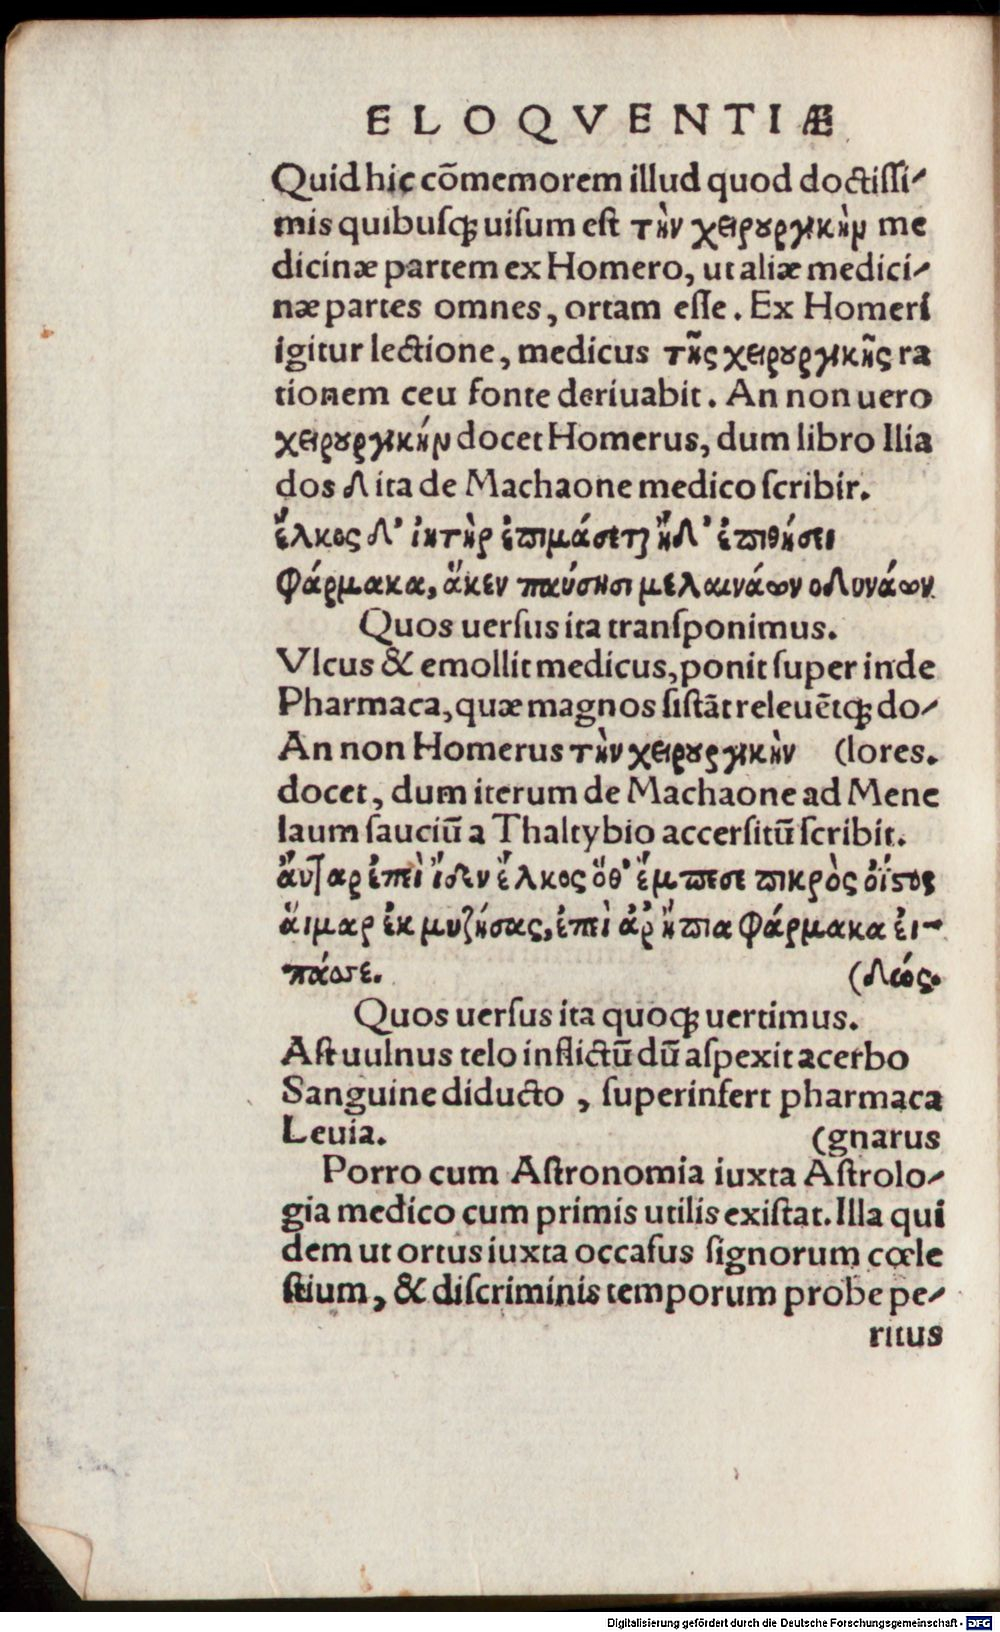 ELOQVENTIÆ
Quid hic cõmemorem illud quod doctissi-
mis quibusq; uisum est τὴν χειρουργικὴν me
dicinæ partem ex Homero, ut aliæ medici-
næ partes omnes, ortam esse. Ex Homeri
igitur lectione, medicus τῆς χειρουργικῆς ra
tionem ceu fonte deriuabit. An non uero
χειρουργικήν docet Homerus, dum libro Ilia
dos δ ita de Machaone medico scribit.
ἕλκος δ' ἰητὴρ ἐπιμάσεται ἠδ' ἐπιθήσει
Φάρμακα, ἅκεν παύσησι μελαινάων οδυνάων.
Quos uersus ita transponimus.
Vlcus & emollit medicus, ponit super inde
Pharmaca, quæ magnos sistãt releuẽtq; do-
An non Homerus τὴν χειρουργικὴν (lores.
docet, dum iterum de Machaone ad Mene
laum sauciũ a Thaltybio accersitũ scribit.
ἀυταρ ἐπεὶ ἴδεν ἕλκος ὅθ' ἔμπεσε πικρὸς ὀϊστος
ἅιμαρ ἐκ μυζήσας, ἐπεὶ ἀρ ἤπια Φάρμακα ἐι-
πάσσε. (δώς.
Quos uersus ita quoq; uertimus.
Ast uulnus telo inflictũ dũ aspexit acerbo
Sanguine diducto, superinfert pharmaca
Leuia. (gnarus
Porro cum Astronomia iuxta Astrolo-
gia medico cum primis utilis existat. Illa qui
dem ut ortus iuxta occasus signorum cœle
stium, & discriminis temporum probe pe-
ritus
Digitalisierung gefördert durch die Deutsche Forschungsgemeinschaft - DFG